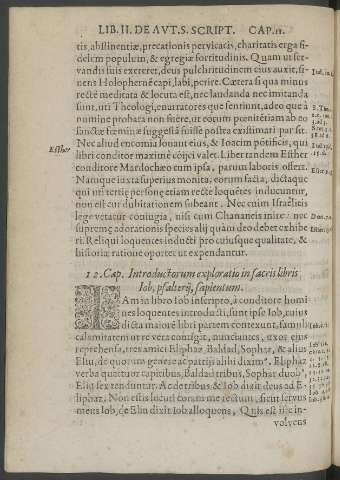 LIB. II. DE AVT. S. SCRIPT. CAP. 12.
tis, abstinentiæ, precationis pervicacis, charitatis erga fi-
delem populum, & egregiæ fortitudinis. Quam ut ser-
vandis suis exereret, deus pulchritudinem eius auxit, si-
nens Holophernē capi, labi, perire. Cætera si qua minus
rectè meditata & locuta est, nec laudanda nec imitanda
sunt, uti Theologi, enarratores que sentiunt, adeo que à
numine probata non fuere, ut eorum pœnitētiam ab eo
sanctæ fœminæ suggestā fuisse postea existimari par sit.
Nec aliud encomia Iovant eius, & Ioacim pōtificis, qui
Esther
libri conditor maximè cōijci valet. Liber tandem Esther
conditore Mardochæo cum ipsa, parum laboris offert.
Namque iuxta superius monita, eorum facta, dictaque
qui uti tertię personę etiam rectè loquētes inducuntur,
non est cur dubitationem subeant. Nec enim Israēlitis
lege vetatur coniugia, nisi cum Chananeis inire: nec
supremę adorationis species alij quam deo debet exhibe
ri. Reliqui loquentes inducti pro cuiusque qualitate, &
historiæ ratione oportet ut expendantur.
12. Cap. Introductorum exploratio in sacris libris
Iob, psalterij, sapientum.
IAm in libro Iob inscripto, à conditore homi
nes loquentes introducti, sunt ipse Iob, cuius
dicta maiorē libri partem contexunt, famuli
calamitatem ut re vera contigit, nunciantes, uxor eius
reprehensa, tres amici Eliphaz, Baldad, Sophar, & alius
Eliu, de quorum genere ac patrijs alibi diximº. Eliphaz
verba quattuor capitibus, Baldad tribus, Sophar duobº,
Eliu sex tenduntur. Ac de tribus & Iob dixit deus ad E-
liphaz, Non estis locuti coram me rectum, sicut servus
meus Iob, de Eliu dixit Iob alloquens, Quis est iste in-
volvens